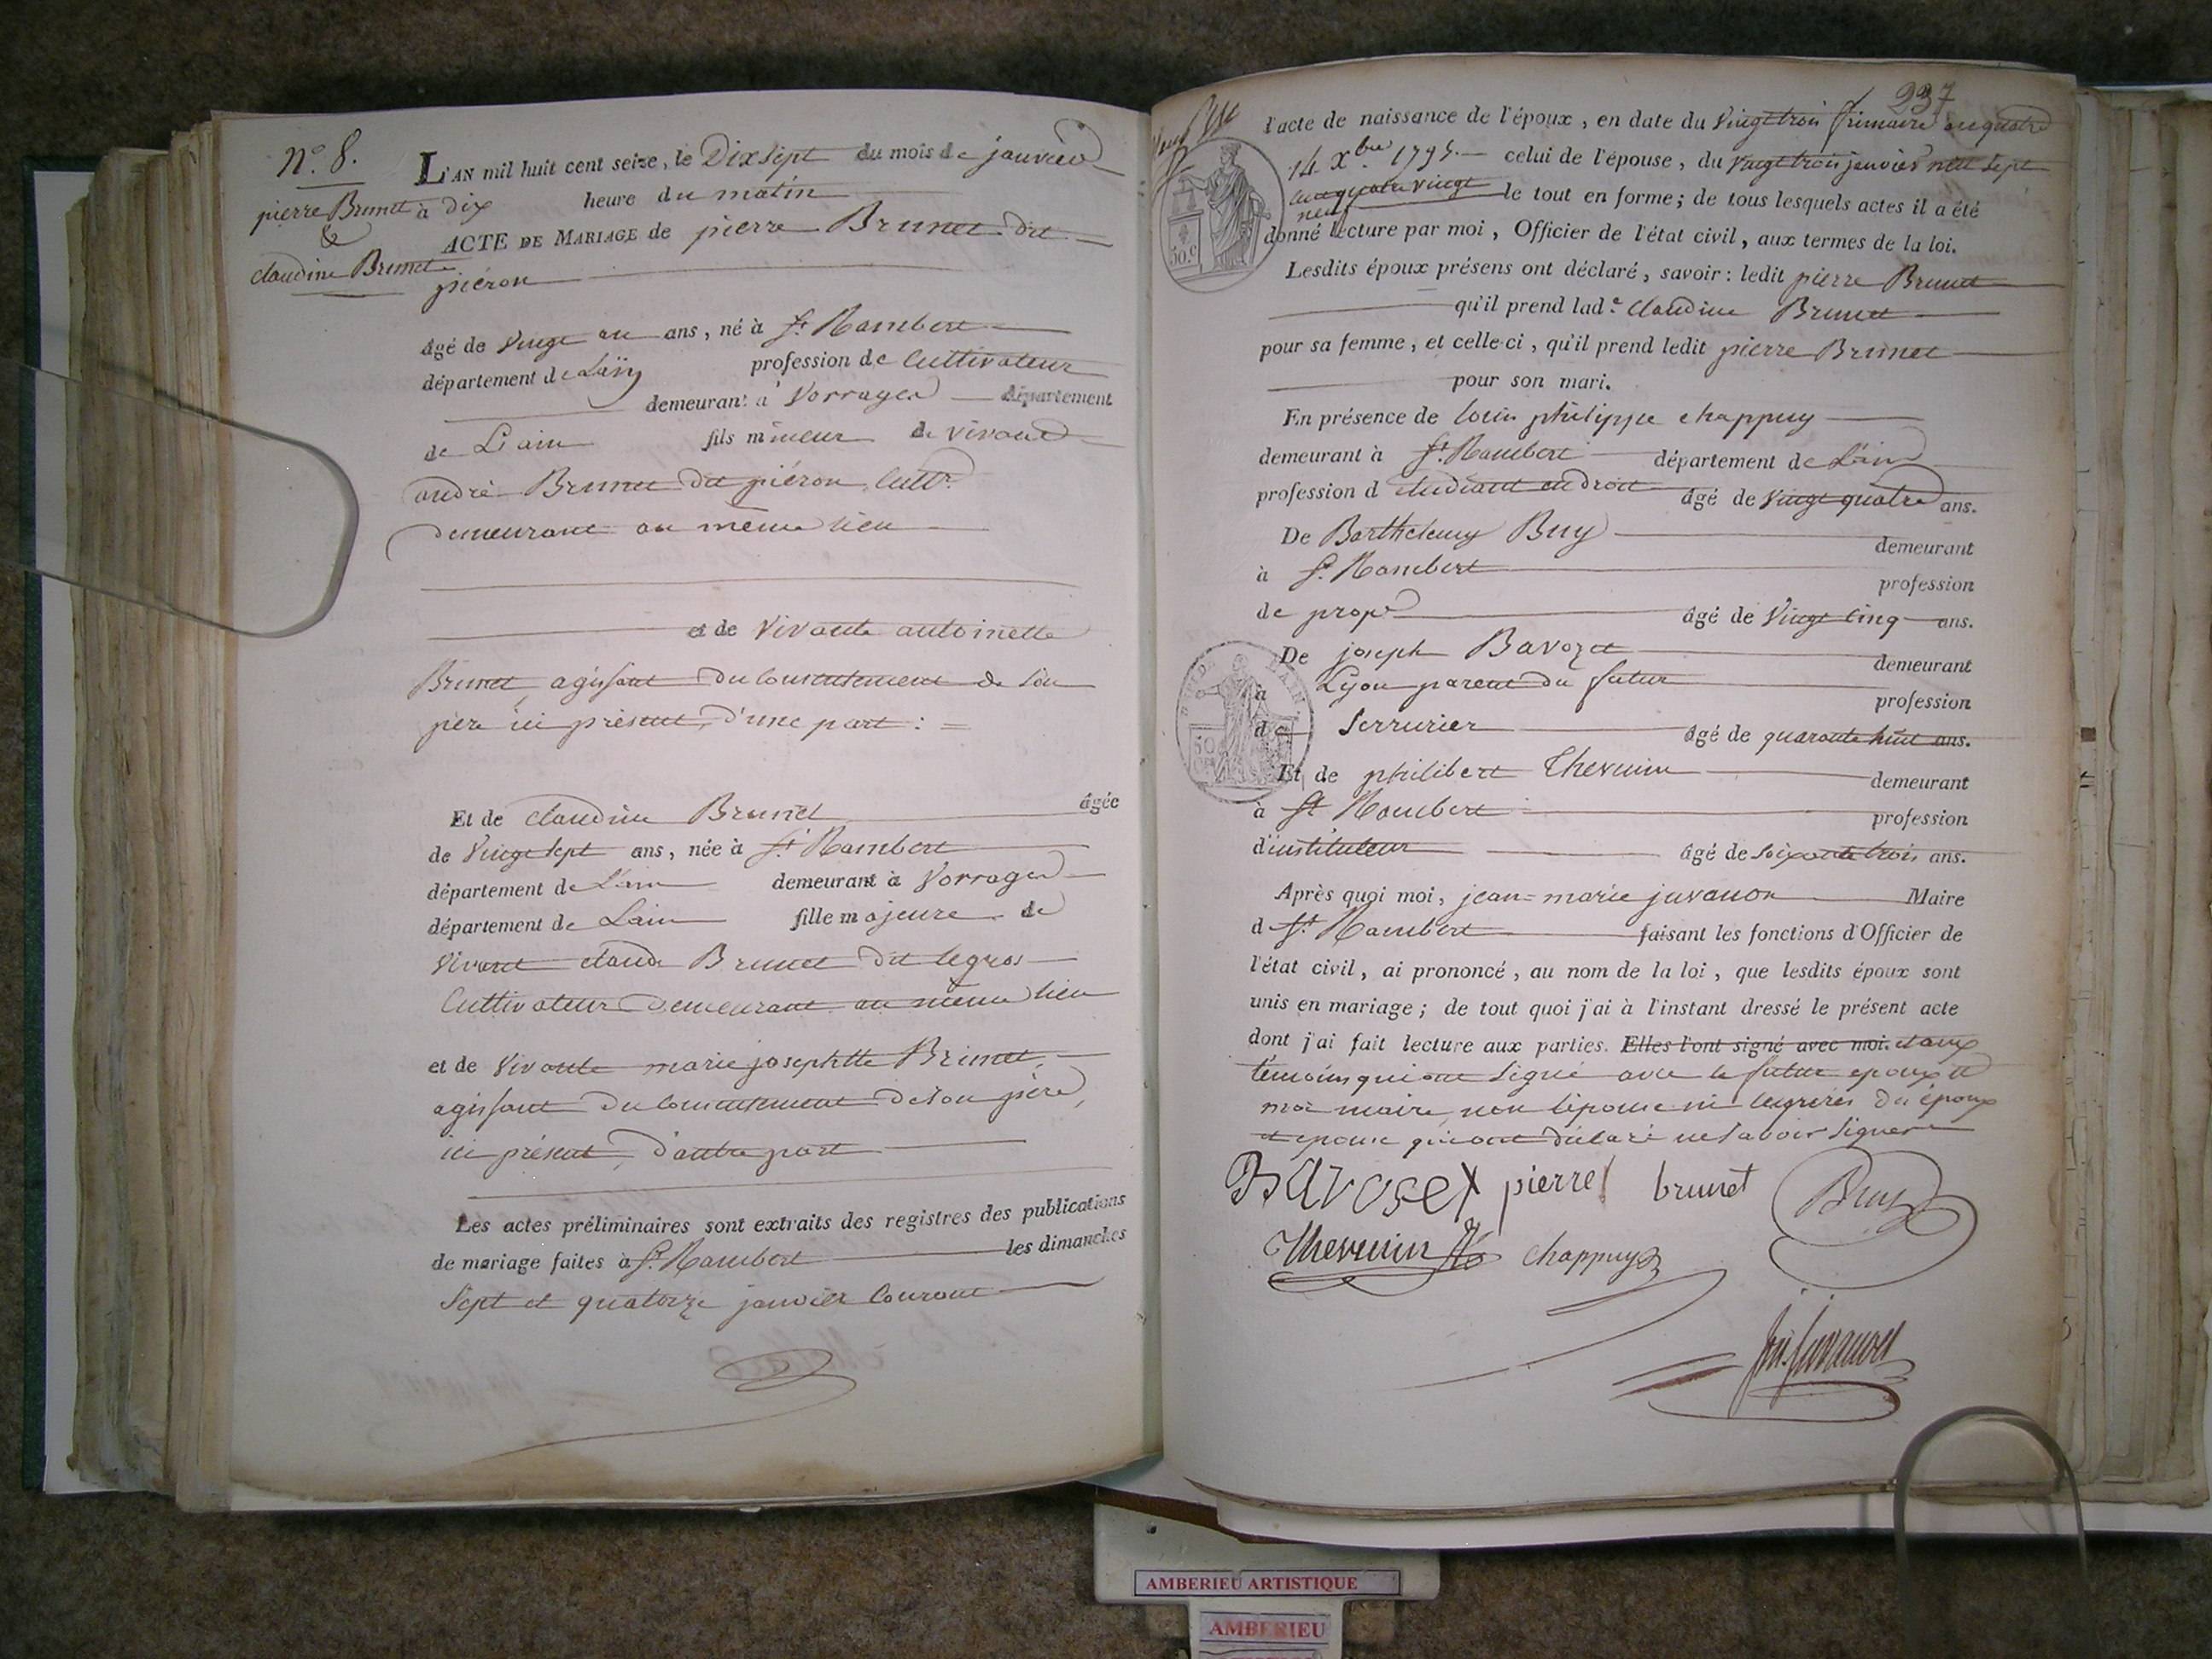 N.° 8.
pierre Brunet
&
claudine Brunet
L'AN mil huit cent seize, le Dix sept du mois de janvier
à dix heure du matin
ACTE DE MARIAGE de pierre Brunet dit
piéron
âgé de vingt un ans, né à St Rambert
département de L'ain profession de Cultivateur
demeurant à Vorrages département
de L'ain fils mineur de vivant
andré Brunet dit piéron, Cultr
demeurant au même lieu
et de vivante antoinette
Brunet, agissant du Consentement de son
père ici présent, d'une part : =
Et de claudine Brunet âgée
de vingt sept ans, née à St Rambert
département de L'ain demeurant à Vorrages
département de Lain fille majeure de
vivant claude Brunet dit legros
Cultivateur demeurant au même lieu
et de vivante marie josephtte Brunet,
agissant du Consentement de son père,
ici présent, d'autre part
Les actes préliminaires sont extraits des registres des publications
de mariage faites à St Rambert les dimanches
Sept et quatorze janvier Courant
237
l'acte de naissance de l'époux, en date du vingt trois frimaire an quatre
14 Xbre 1795. celui de l'épouse, du vingt trois janvier mil sept
cent quatre vingt
neuf le tout en forme; de tous lesquels actes il a été
donné lecture par moi, Officier de l'état civil, aux termes de la loi.
50.C
Lesdits époux présens ont déclaré, savoir: ledit pierre Brunet
qu'il prend lad.e Claudine Brunet
pour sa femme, et celle-ci, qu'il prend ledit pierre Brunet
pour son mari.
En présence de louis philippe chappuy
demeurant à St Rambert département de L'ain
profession d'étudiant en droit âgé de vingt quatre ans.
De Barthelemy Buy demeurant
à St Rambert profession
de propre âgé de vingt cinq ans.
De joseph Bavozet demeurant
à Lyon parent du futur profession
de Serrurier âgé de quarante huit ans.
Et de philibert Thevenin demeurant
à St Rambert profession
d'instituteur âgé de soixante trois ans.
Après quoi moi, jean-marie juvanon Maire
d St Rambert faisant les fonctions d'Officier de
l'état civil, ai prononcé, au nom de la loi, que lesdits époux sont
unis en mariage; de tout quoi j'ai à l'instant dressé le présent acte
dont j'ai fait lecture aux parties. Elles l'ont signé avec moi. et aux
témoins qui ont signé avec le futur epoux et
moi maire, non l'épouse ni les pères des époux
et epouse qui ont déclaré ne savoir signer
Bavoset pierre brunet Buy
Thevenin chappuy
Juvanon
AMBERIEU ARTISTIQUE
AMBERIEU